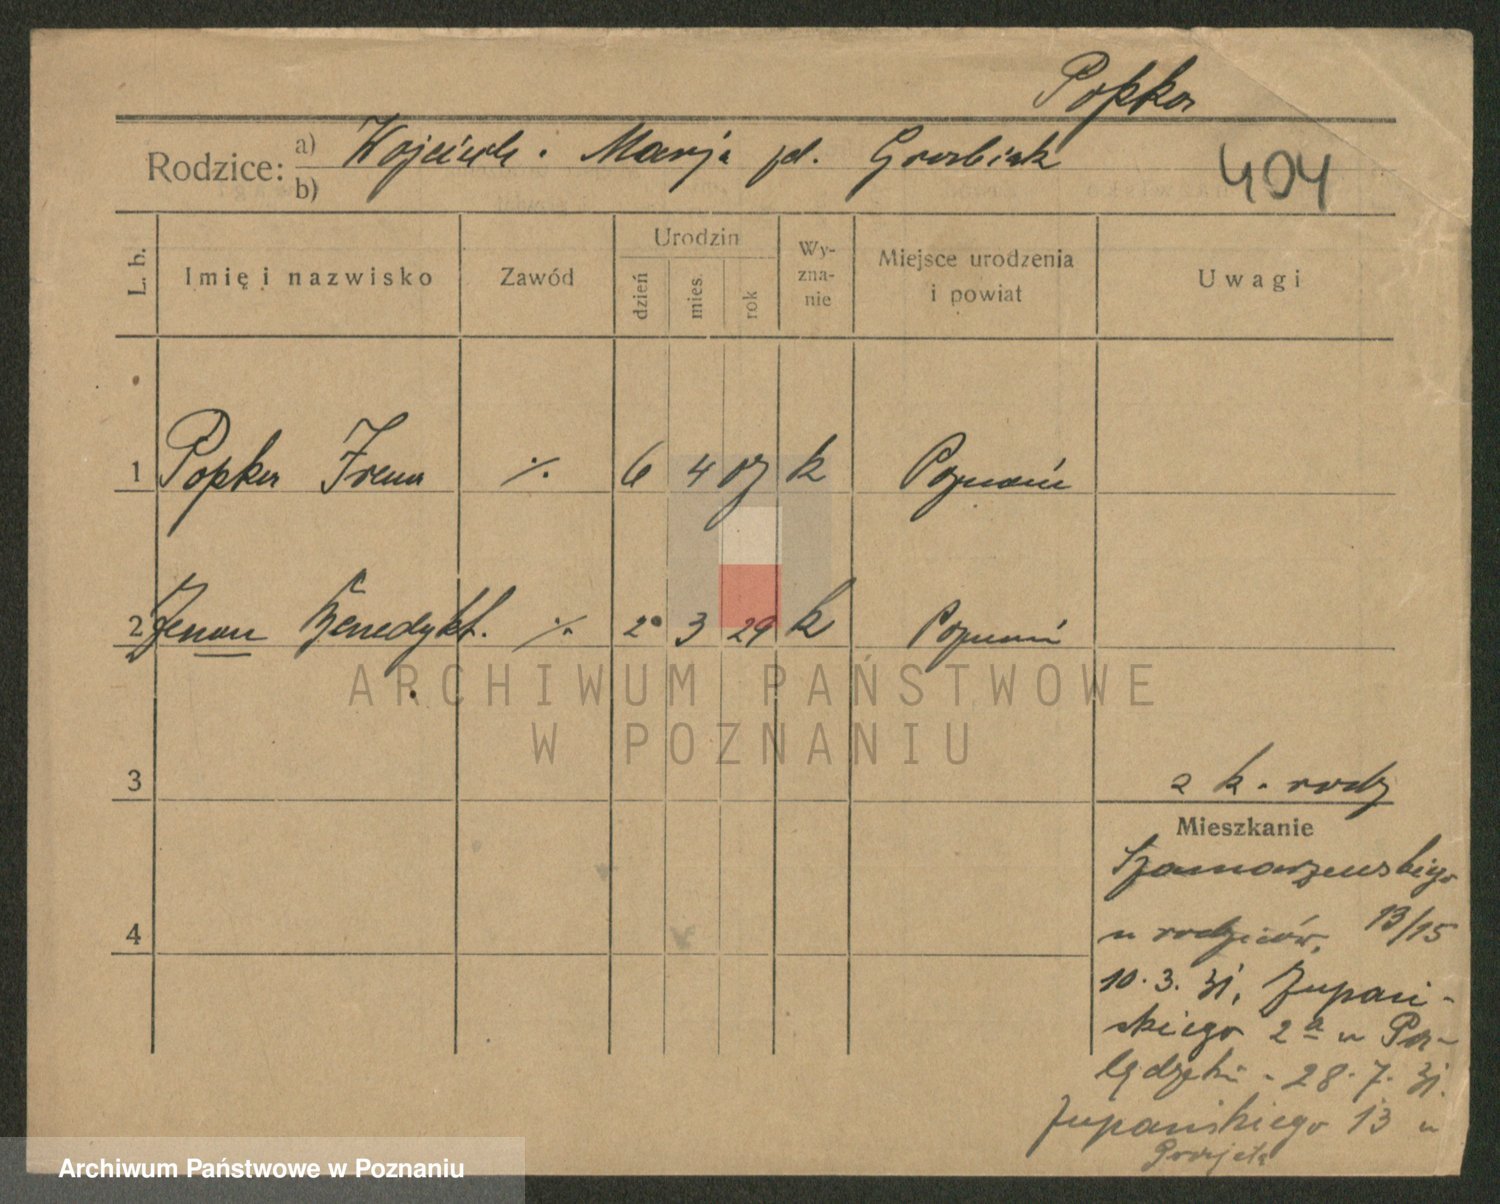 Popka
Rodzice: a) Wojciech. Marja zd. Grosbiak
b)
404
L. b.
Imię i nazwisko
Zawód
Urodzin
dzień
mies.
rok
Wy-
zna-
nie
Miejsce urodzenia
i powiat
Uwagi
1 Popka Irena ./. 6 4 07 k Poznań
2 Zenon Benedykt. ./. 2 3 29 k Poznań
3
4
z k. rodz
Mieszkanie
Szamarzewskiego
u rodziców, 13/15
10.3.31, Żupań-
skiego 2a u
28.7.31.
Żupańskiego 13 u
ARCHIWUM PAŃSTWOWE
W POZNANIU
Archiwum Państwowe w Poznaniu